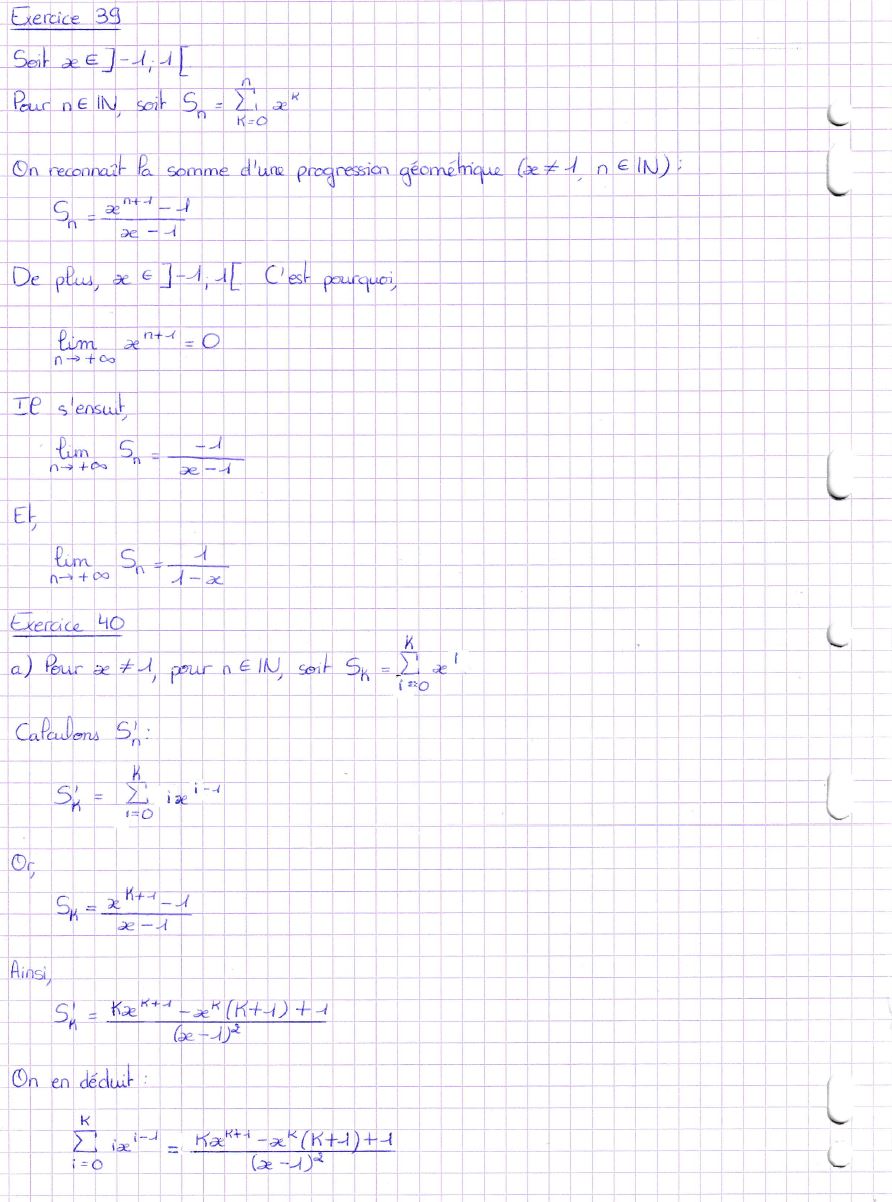 Exercice 39
Soit x ∈ ]-1; 1[
Pour n ∈ ℕ, soit S_n = ∑_{K=0}^{n} x^K
On reconnaît la somme d'une progression géométrique (x ≠ 1, n ∈ ℕ) :
S_n = (x^{n+1} - 1)/(x - 1)
De plus, x ∈ ]-1; 1[ C'est pourquoi,
lim_{n→+∞} x^{n+1} = 0
Il s'ensuit,
lim_{n→+∞} S_n = (-1)/(x - 1)
Et,
lim_{n→+∞} S_n = 1/(1 - x)
Exercice 40
a) Pour x ≠ 1, pour n ∈ ℕ, soit S_K = ∑_{i=0}^{K} x^i
Calculons S'_n :
S'_K = ∑_{i=0}^{K} ix^{i-1}
Or,
S_K = (x^{K+1} - 1)/(x - 1)
Ainsi,
S'_K = (Kx^{K+1} - x^K(K+1) + 1)/(x - 1)^2
On en déduit :
∑_{i=0}^{K} ix^{i-1} = (Kx^{K+1} - x^K(K+1) + 1)/(x - 1)^2